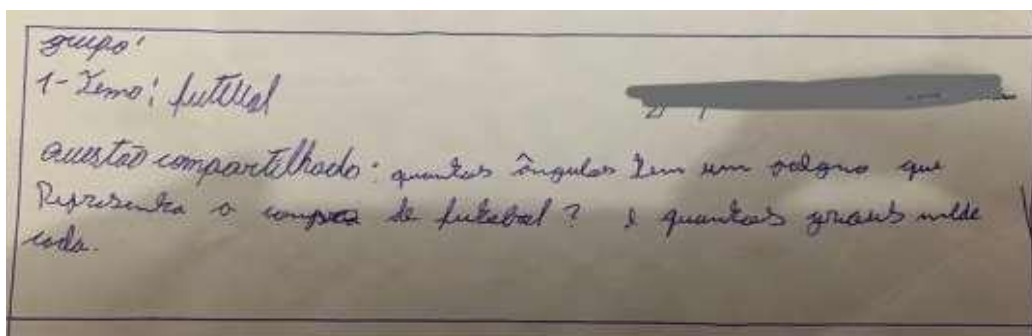 grupo:
1- Tema: futebol
questão compartilhada: quantos ângulos tem um que
Representa o de futebol? e quantos graus mede
cada.